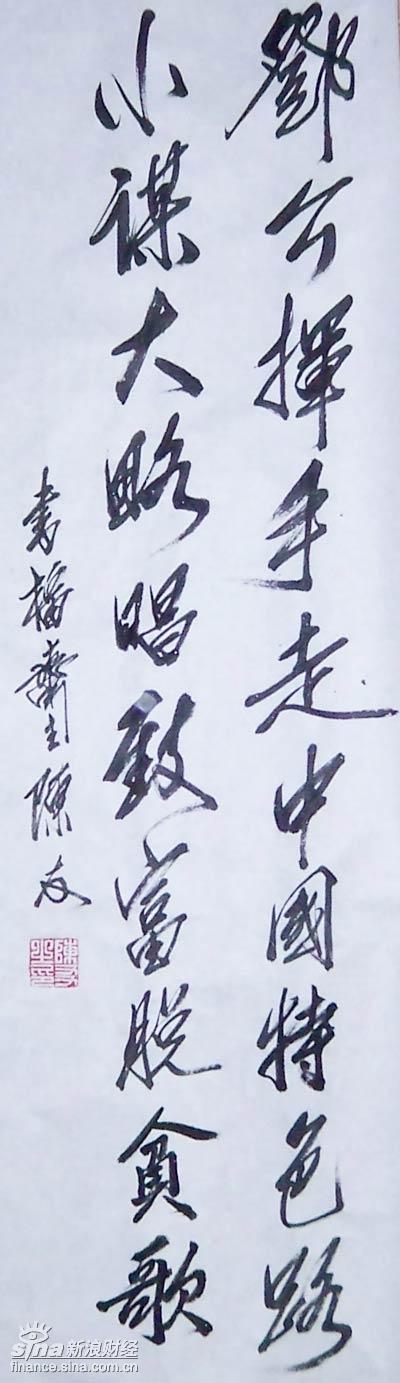 鄧公揮手走中國特色路
小謀大略唱致富脱貧歌
書橋齋主陳友
陳友之印
sina 新浪财经
finance.sina.com.cn